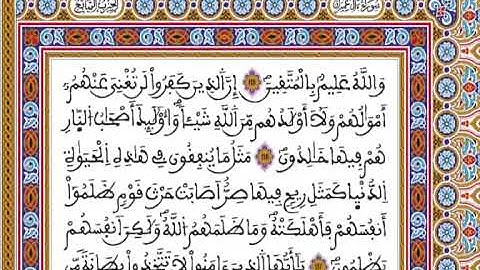 سورة آل عمران
الحزب السابع
وَاللَّهُ عَلِيمٌ بِالْمُتَّقِينَ ۝ إِنَّ الَّذِينَ كَفَرُوا لَن تُغْنِيَ عَنْهُمُ
أَمْوَالُهُمْ وَلَا أَوْلَادُهُم مِّنَ اللَّهِ شَيْئًا وَأُوْلَئِكَ أَصْحَابُ النَّارِ
هُمْ فِيهَا خَالِدُونَ ۝ مَثَلُ مَا يُنفِقُونَ فِي هَذِهِ الْحَيَوٰةِ
الدُّنْيَا كَمَثَلِ رِيحٍ فِيهَا صِرٌّ أَصَابَتْ حَرْثَ قَوْمٍ ظَلَمُوا
أَنفُسَهُمْ فَأَهْلَكَتْهُ وَمَا ظَلَمَهُمُ اللَّهُ وَلَكِنْ أَنفُسَهُمْ
يَظْلِمُونَ ۝ يَأَيُّهَا الَّذِينَ ءَامَنُوا لَا تَتَّخِذُوا بِطَانَةً مِّن